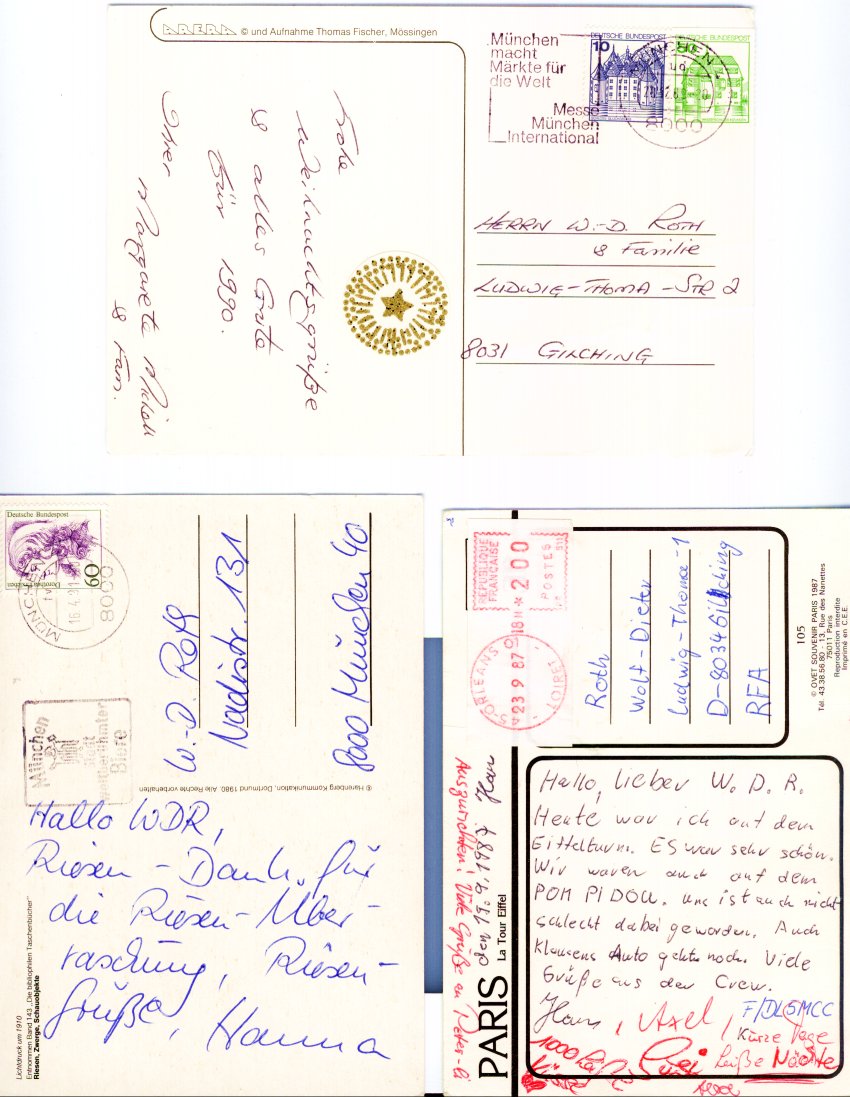 ARERA © und Aufnahme Thomas Fischer, Mössingen
München
macht
Märkte für
die Welt
Messe
München
International
10
DEUTSCHE BUNDESPOST
DEUTSCHE BUNDESPOST
8000
Frohe
Weihnachtsgrüße
& alles Gute
für 1990.
Ihre
Margarete
& Fam.
HERRN W.-D. ROTH
& Familie
LUDWIG-THOMA-STR 2
8031 GILCHING
Deutsche Bundespost
60
MÜNCHEN
8000
München
Biere
W.-D. Roth
Nadistr. 131
8000 München 40
© Harenberg Kommunikation, Dortmund 1980. Alle Rechte vorbehalten
Hallo WDR,
Riesen-Dank für
die Riesen-Über-
raschung, Riesen-
Grüße, Hanna
Lichtdruck um 1910
Entnommen Band 143 „Die bibliophilen Taschenbücher"
Riesen, Zwerge, Schauobjekte
REPUBLIQUE
FRANÇAISE
200
POSTES
23 9 87 18H
ORLEANS
LOIRET
Roth
Wolf-Dieter
Ludwig-Thoma-1
D-8034 Gilching
RFA
105
© OVET SOUVENIR PARIS 1987
Tél. 43.38.56.80 - 13, Rue des Nanettes
75011 Paris
Reproduction interdite
Imprimé en C.E.E.
PARIS La Tour Eiffel
den 19.9.1987 Hans
Auszurichten: Viele Grüße an Peter
Hallo, lieber W. D. R.
Heute war ich auf dem
Eiffelturm. ES war sehr schön.
Wir waren auch auf dem
POM PIDOU. Uns ist auch nicht
schlecht dabei geworden. Auch
Klausens Auto geht noch. Viele
Grüße aus der Crew.
Hans, Axel
F/DL5MCC
Kurze Tage
heiße Nächte
1000